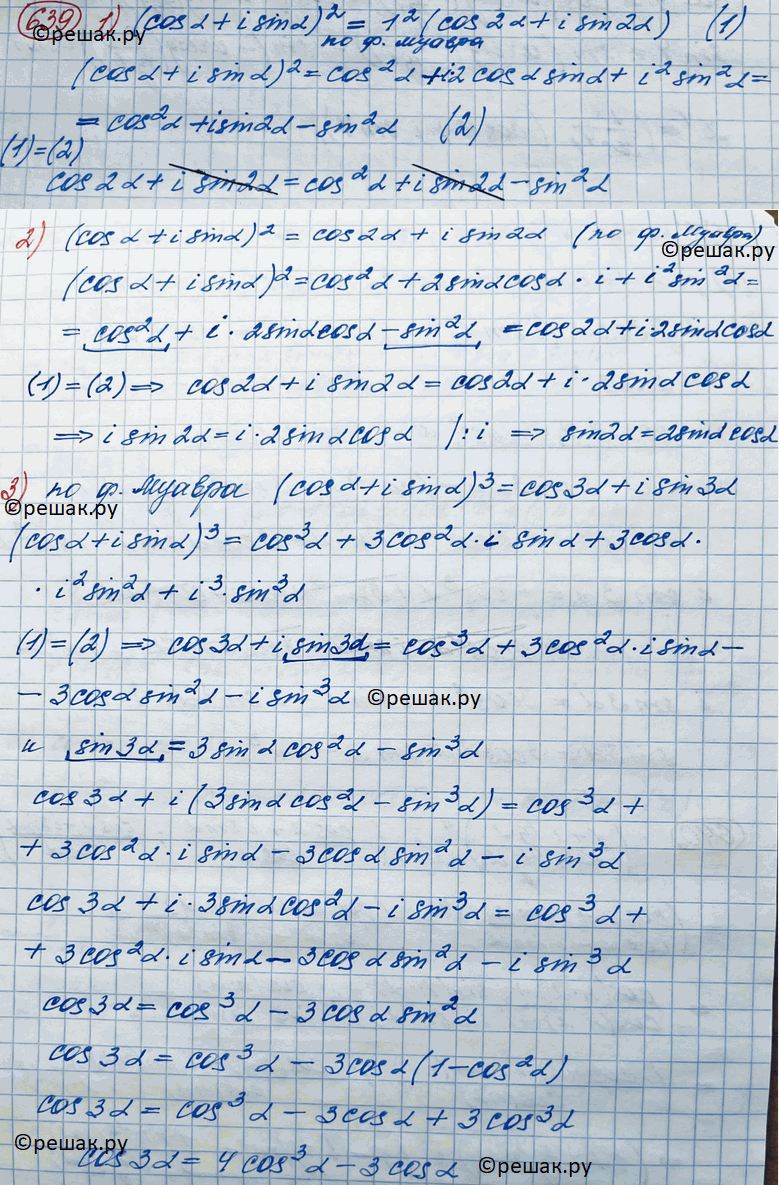 639 1) (cos α + i sin α)² = 1² (cos 2α + i sin 2α) (1)
по ф. Муавра
(cos α + i sin α)² = cos²α + i2 cos α sin α + i² sin²α =
= cos²α + i sin 2α − sin²α (2)
(1) = (2)
cos 2α + i sin 2α = cos²α + i sin 2α − sin²α
2) (cos α + i sin α)² = cos 2α + i sin 2α (по ф. Муавра)
©решак.ру
(cos α + i sin α)² = cos²α + 2 sin α cos α · i + i² sin²α =
= cos²α + i · 2 sin α cos α − sin²α = cos 2α + i · 2 sin α cos α
(1) = (2) ⟹ cos 2α + i sin 2α = cos 2α + i · 2 sin α cos α
⟹ i sin 2α = i · 2 sin α cos α /: i ⟹ sin 2α = 2 sin α cos α
3) по ф. Муавра (cos α + i sin α)³ = cos 3α + i sin 3α
©решак.ру
(cos α + i sin α)³ = cos³α + 3 cos²α · i sin α + 3 cos α ·
· i² sin²α + i³ · sin³α
(1) = (2) ⟹ cos 3α + i sin 3α = cos³α + 3 cos²α · i sin α −
− 3 cos α sin²α − i sin³α ©решак.ру
и sin 3α = 3 sin α cos²α − sin³α
cos 3α + i (3 sin α cos²α − sin³α) = cos³α +
+ 3 cos²α · i sin α − 3 cos α sin²α − i sin³α
cos 3α + i · 3 sin α cos²α − i sin³α = cos³α +
+ 3 cos²α · i sin α − 3 cos α sin²α − i sin³α
cos 3α = cos³α − 3 cos α sin²α
cos 3α = cos³α − 3 cos α (1 − cos²α)
cos 3α = cos³α − 3 cos α + 3 cos³α
©решак.ру
cos 3α = 4 cos³α − 3 cos α ©решак.ру